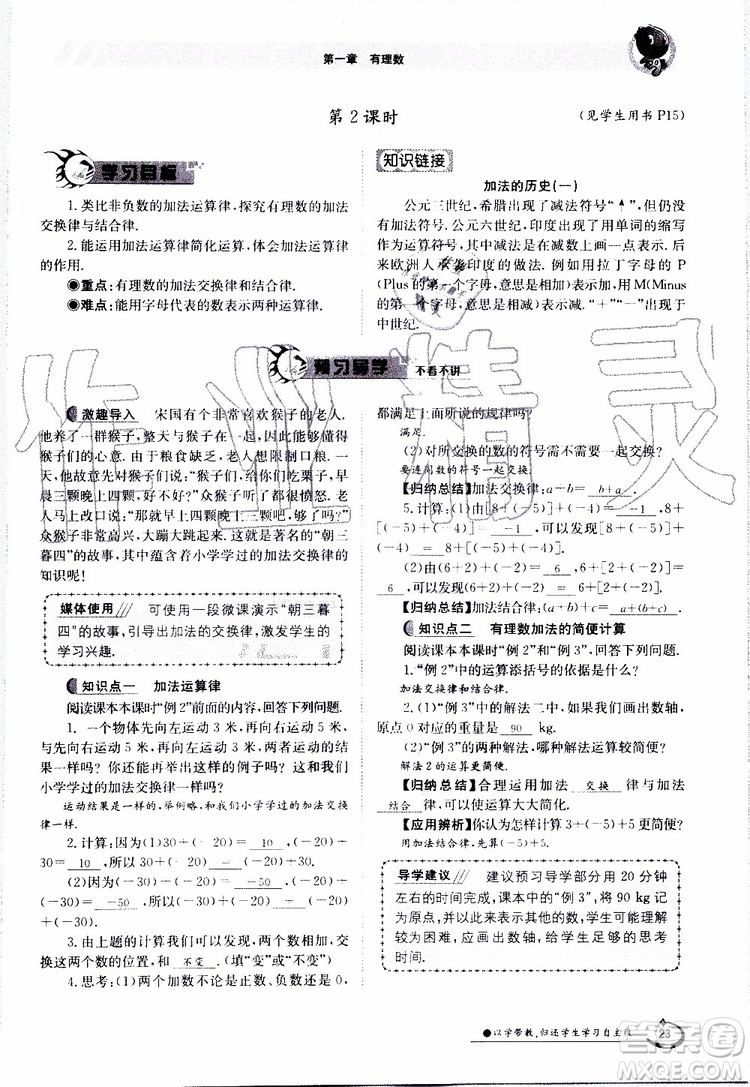 第一章 有理数
第2课时
(见学生用书P15)
学习目标
1.类比非负数的加法运算律,探究有理数的加法
交换律与结合律.
2.能运用加法运算律简化运算,体会加法运算律
的作用.
●重点:有理数的加法交换律和结合律.
●难点:能用字母代表的数表示两种运算律.
知识链接
加法的历史(一)
公元三世纪,希腊出现了减法符号“↑”,但仍没
有加法符号.公元六世纪,印度出现了用单词的缩写
作为运算符号.其中减法是在减数上画一点表示.
后来欧洲人承袭印度的做法.例如用拉丁字母的P
(Plus的第一个字母,意思是相加)表示加,用M(Minus
的第一个字母,意思是相减)表示减.“+”“-”出现于
中世纪.
预习导学 不看不讲
激趣导入 宋国有一个非常喜欢猴子的老人.
他养了一群猴子,整天与猴子在一起,因此能够懂得
猴子们的心意.由于粮食缺乏,老人想限制口粮.一
天,他故意先对猴子们说:“猴子们,给你们吃栗子,早
晨三颗晚上四颗,够了吗?”众猴子非常愤怒.不一会,
老人马上改口道:“那就早上四颗晚上三颗,够了吧?”
众猴子非常高兴,大蹦大跳起来.这就是著名的“朝三
暮四”的故事,其中蕴含着小学学过的加法交换律的
知识呢!
媒体使用 可使用一段微课演示“朝三暮
四”的故事,引导出加法的交换律,激发学生的
学习兴趣.
知识点一 加法运算律
阅读课本本课时“例2”前面的内容,回答下列问题.
1.一个物体先向左运动3米,再向右运动5米,
与先向右运动5米,再向左运动3米,两次运动结果一
样吗?你还能举出这样的例子吗?这和我们小
学学过的什么运算律一样?
运动结果是一样的,举例略,和我们小学学过的加法交换
律一样.
2.计算:因为(1)30+(-20)= 10 ,(-20)+
30= 10 ,所以30+(-20)=(-20)+30.
(2)因为(-30)+(-20)= -50 ,(-20)+
(-30)= -50 ,所以(-30)+(-20)=(-20)+
(-30).
3.由上题的计算我们可以发现,两个数相加,交
换这两个数的位置,和 不变 .(填“变”或“不变”)
4.思考:(1)两个加数不论是正数、负数还是0,
都满足上面所说的规律吗?
满足.
(2)对所交换的数的符号需不需要一起交换?
要连同数的符号一起交换.
【归纳总结】加法交换律:a+b= b+a .
5.计算:(1)因为[8+(-5)]+(-4)= -1 ,8+
[(-5)+(-4)]= -1 ,所以[8+(-5)]+(-4)=8+
[(-5)+(-4)].
(2)由(6+2)+(-2)= 6 ,6+[2+(-2)]=
6 ,可知(6+2)+(-2)=6+[2+(-2)].
【归纳总结】加法结合律:(a+b)+c= a+(b+c) .
知识点二 有理数加法的简便计算
阅读课本本课时“例2”和“例3”,回答下列问题.
1.“例2”的运算添括号的依据是什么?
加法交换律和结合律.
2.(1)“例3”中的解法二中,如果我们画出数轴,
原点0对应的重量是 90 kg.
(2)“例3”的两种解法,哪种解法运算较简便?
解法2的运算更简便.
【归纳总结】合理运用加法 交换 律与加法
结合 律,可以使运算大大简化.
【应用辨析】你认为怎样计算3+(-5)+5更简便?
用加法结合律,先算(-5)+5.
导学建议 建议预习导学部分用20分钟
左右的时间完成,课本中的“例3”,将90 kg记
为原点,并以此来表示其他的数,学生可能理解
较为困难,应画出数轴,给学生足够的思考
时间.
●以学带教,归还学生学习自主权
23
作业精灵
答案圈
MXQE.COM